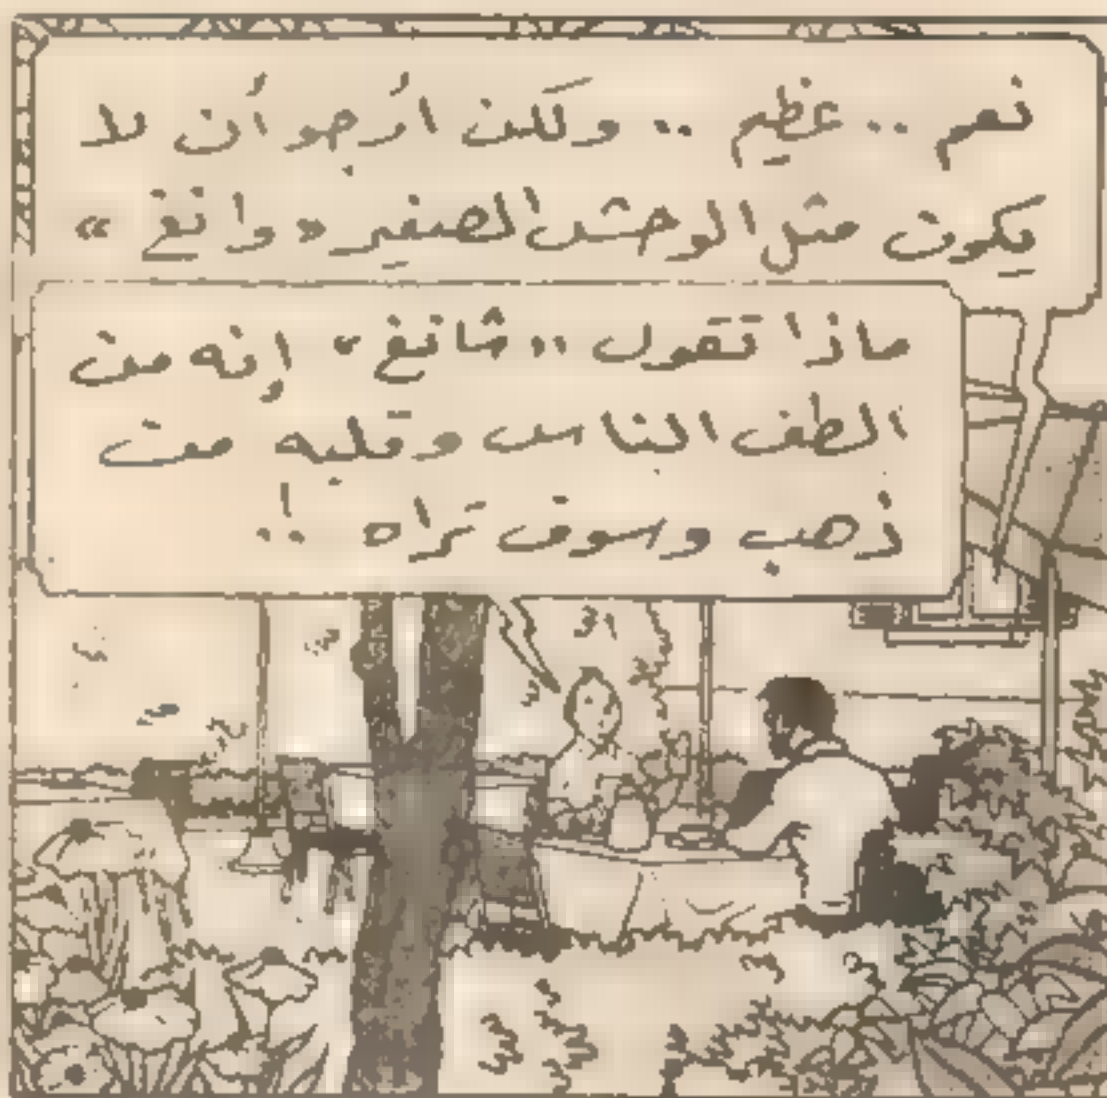 نعم .. عظيم .. ولكن أرجو أن لا
يكون مثل الوحش الصغير « وانغ »
ماذا تقول « شانغ » إنه من
الطف الناس وقلبه من
ذهب وسوف تراه !..